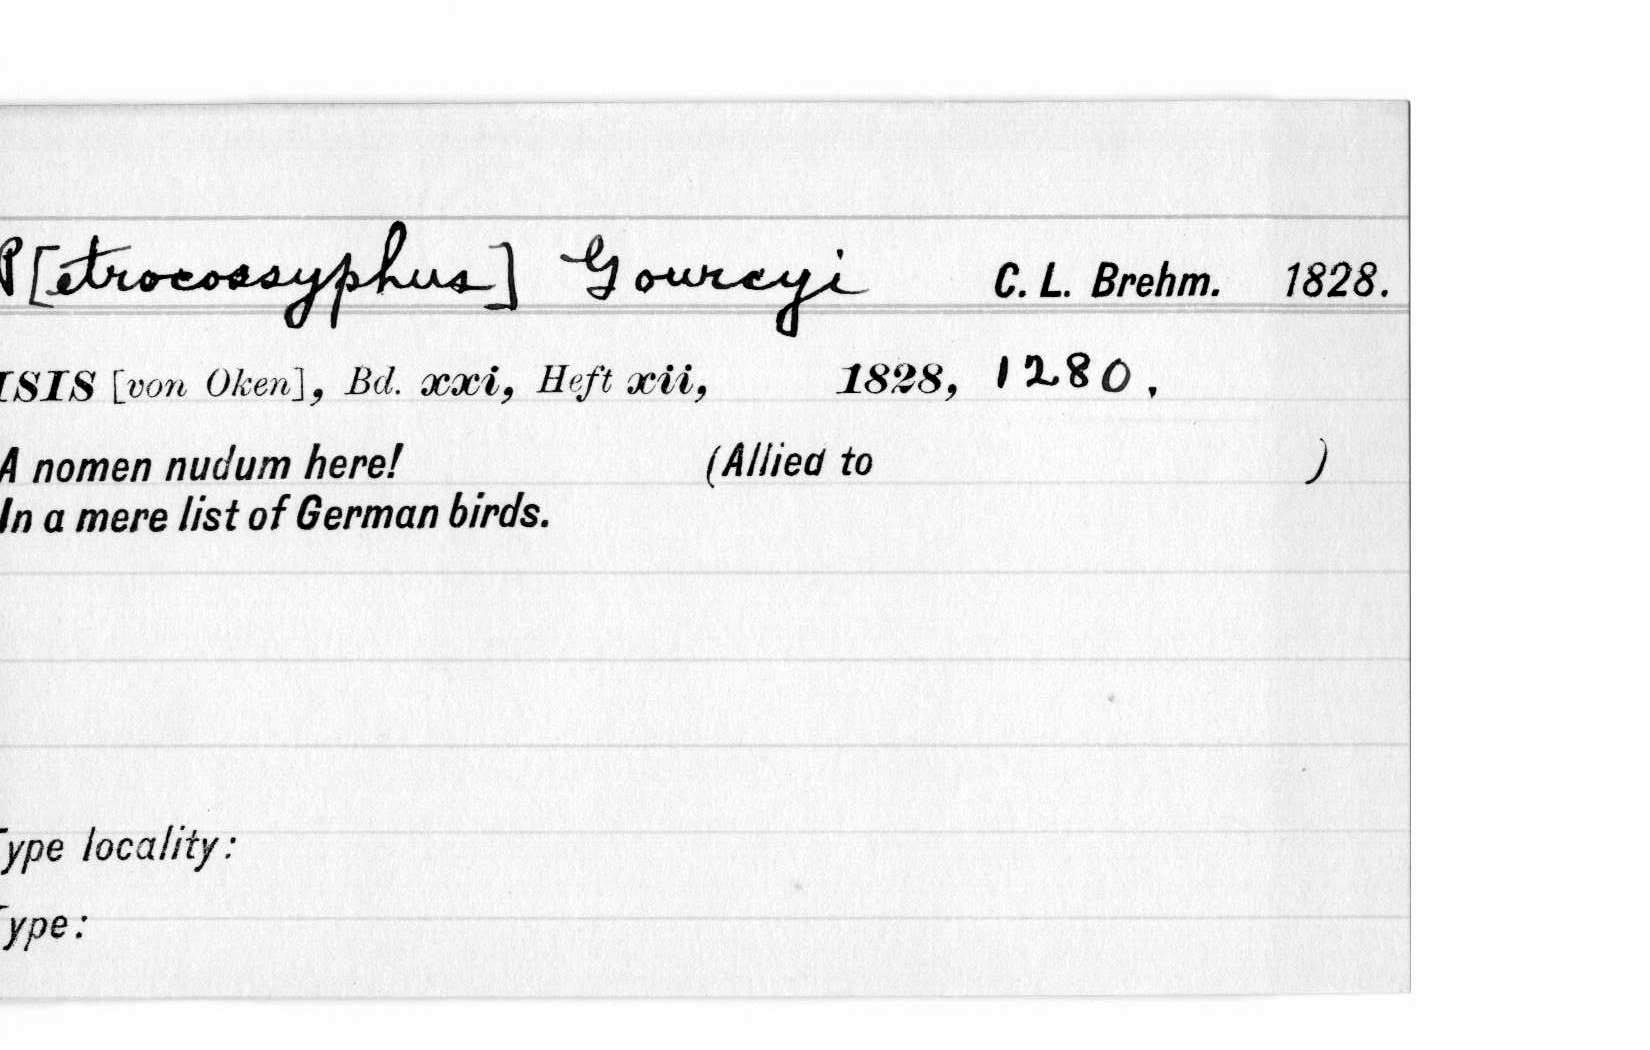 P[etrocossyphus] Gourcyi C. L. Brehm. 1828.
ISIS [von Oken], Bd. xxi, Heft xii, 1828, 1280.
A nomen nudum here! (Allied to )
In a mere list of German birds.
Type locality:
Type: